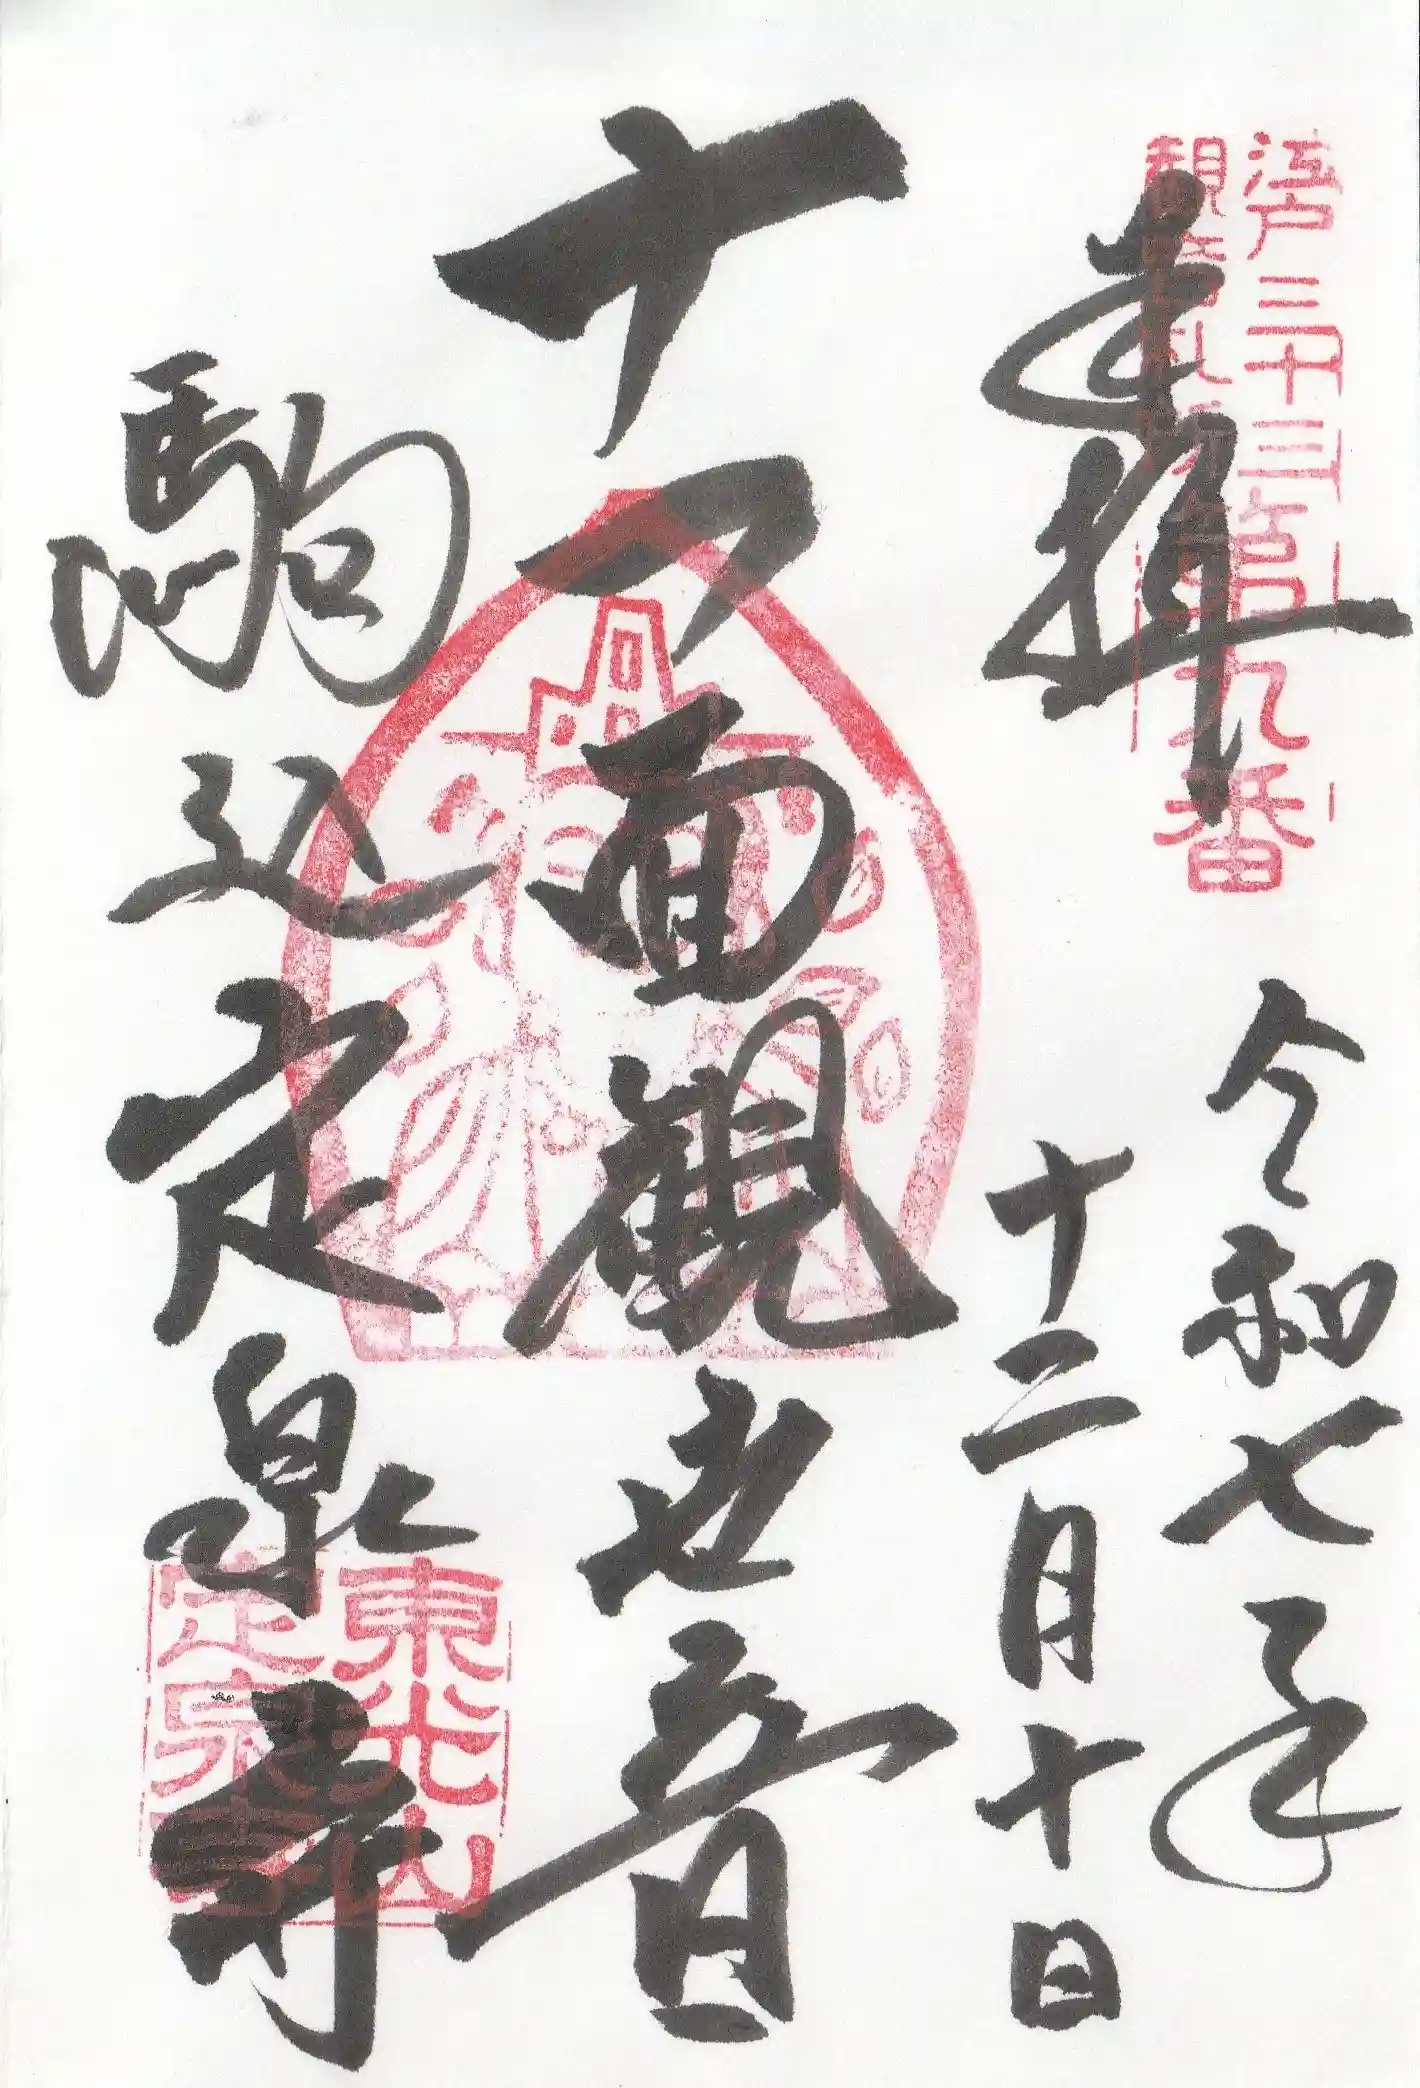 江戸三十三ヶ所
観音札所第九番
奉拝
令和七年
十二月十日
十一面観世音
駒込定泉寺
東光山
定泉寺